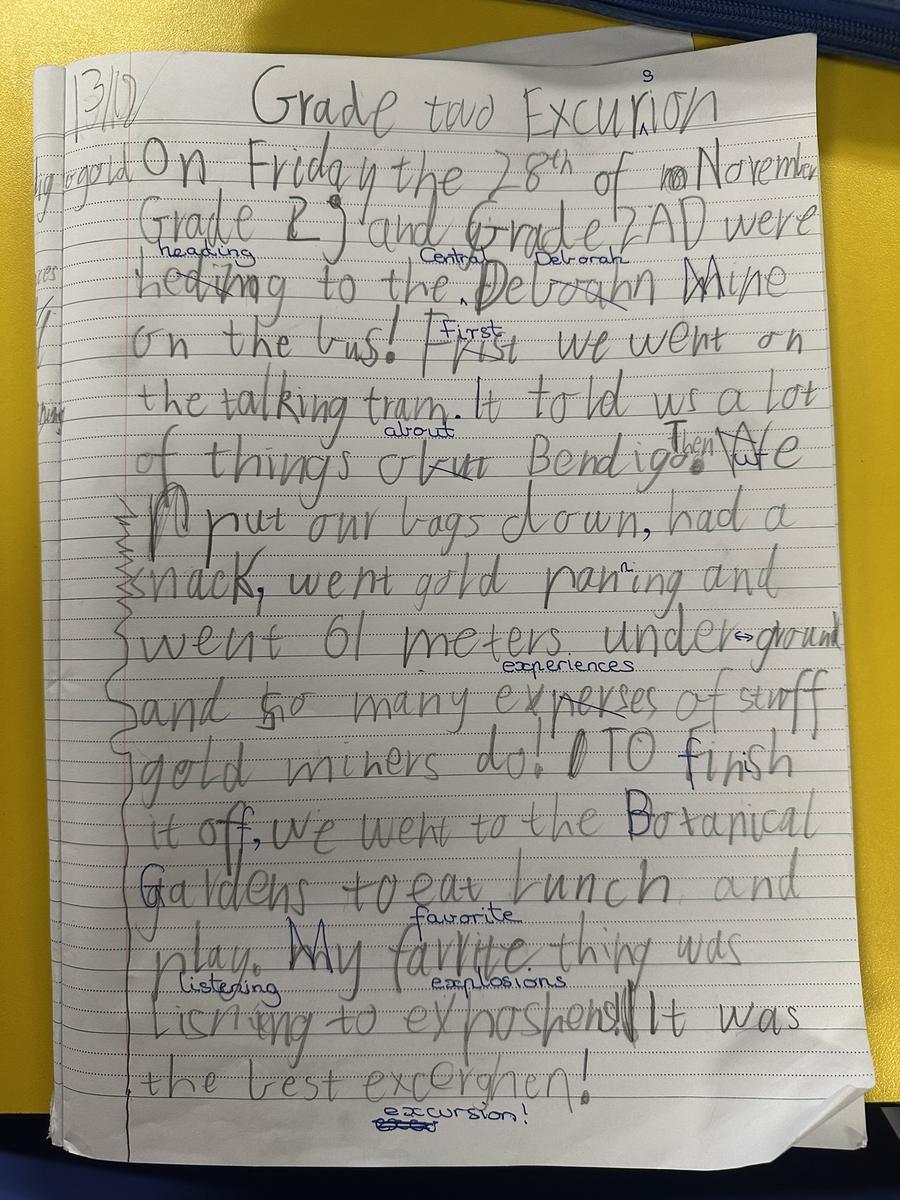 13/12
Grade two Excurion
s
On Friday the 28th of November
Grade 2J and Grade 2AD were
heading Central Deborah
heding to the Deboahn Mine
First
on the bus! Frist we went on
the talking tram. It told us a lot
about
of things obut Bendigo. Then We
put our bags down, had a
n
snack, went gold paning and
went 61 meters under ground
experiences
and so many experses of stuff
gold miners do! TO finish
it off, we went to the Botanical
Gardens to eat lunch and
favorite
play. My favrite thing was
listening explosions
Lisning to exposhens! It was
the best excerghen!
excursion!